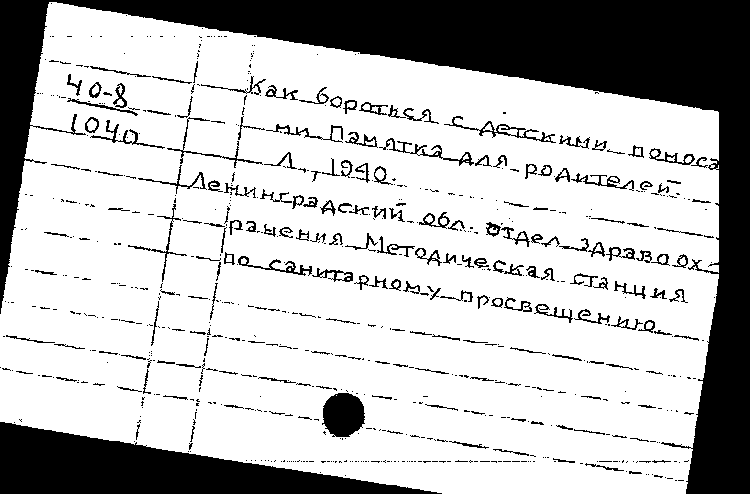 40-8
1040
Как бороться с детскими поноса
ми Памятка для родителей.
Л., 1940.
Ленинградский обл. отдел здравоох-
ранения Методическая станция
по санитарному просвещению.